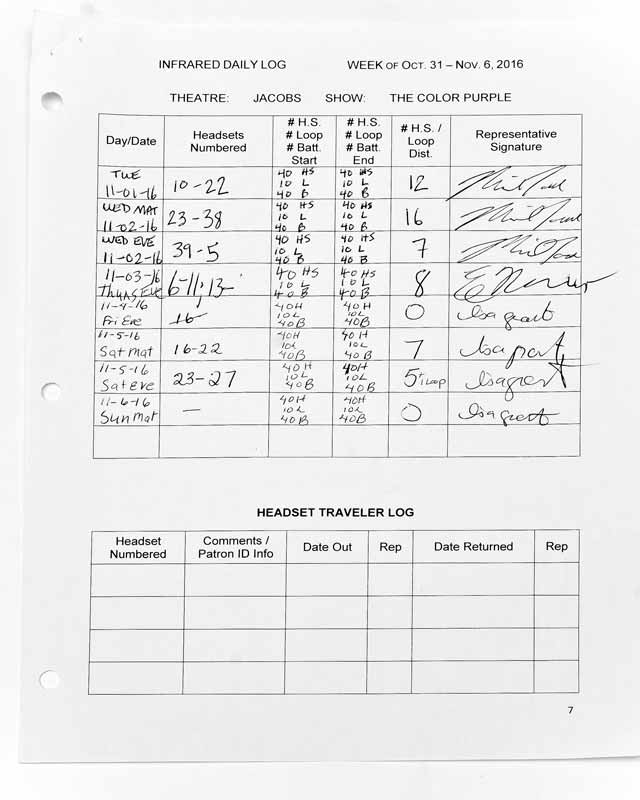 INFRARED DAILY LOG WEEK OF OCT. 31 – NOV. 6, 2016
THEATRE: JACOBS SHOW: THE COLOR PURPLE
Day/Date Headsets Numbered # H.S. # Loop # Batt. Start # H.S. # Loop # Batt. End # H.S. / Loop Dist. Representative Signature
TUE 11-01-16 10-22 40 HS 10 L 40 B 40 HS 10 L 40 B 12
WED MAT 11-02-16 23-38 40 HS 10 L 40 B 40 HS 10 L 40 B 16
WED EVE 11-02-16 39-5 40 HS 10 L 40 B 40 HS 10 L 40 B 7
11-03-16 THURS EVE 6-11, 13- 40 HS 10 L 40 B 40 HS 10 L 40 B 8
11-4-16 Fri Eve 16 40H 10L 40B 40H 10L 40B 0
11-5-16 Sat mat 16-22 40H 10L 40B 40H 10L 40B 7
11-5-16 Sat eve 23-27 40H 10L 40B 40H 10L 40B 5+1Loop
11-6-16 Sun mat — 40H 10L 40B 40H 10L 40B 0
HEADSET TRAVELER LOG
Headset Numbered Comments / Patron ID Info Date Out Rep Date Returned Rep
7